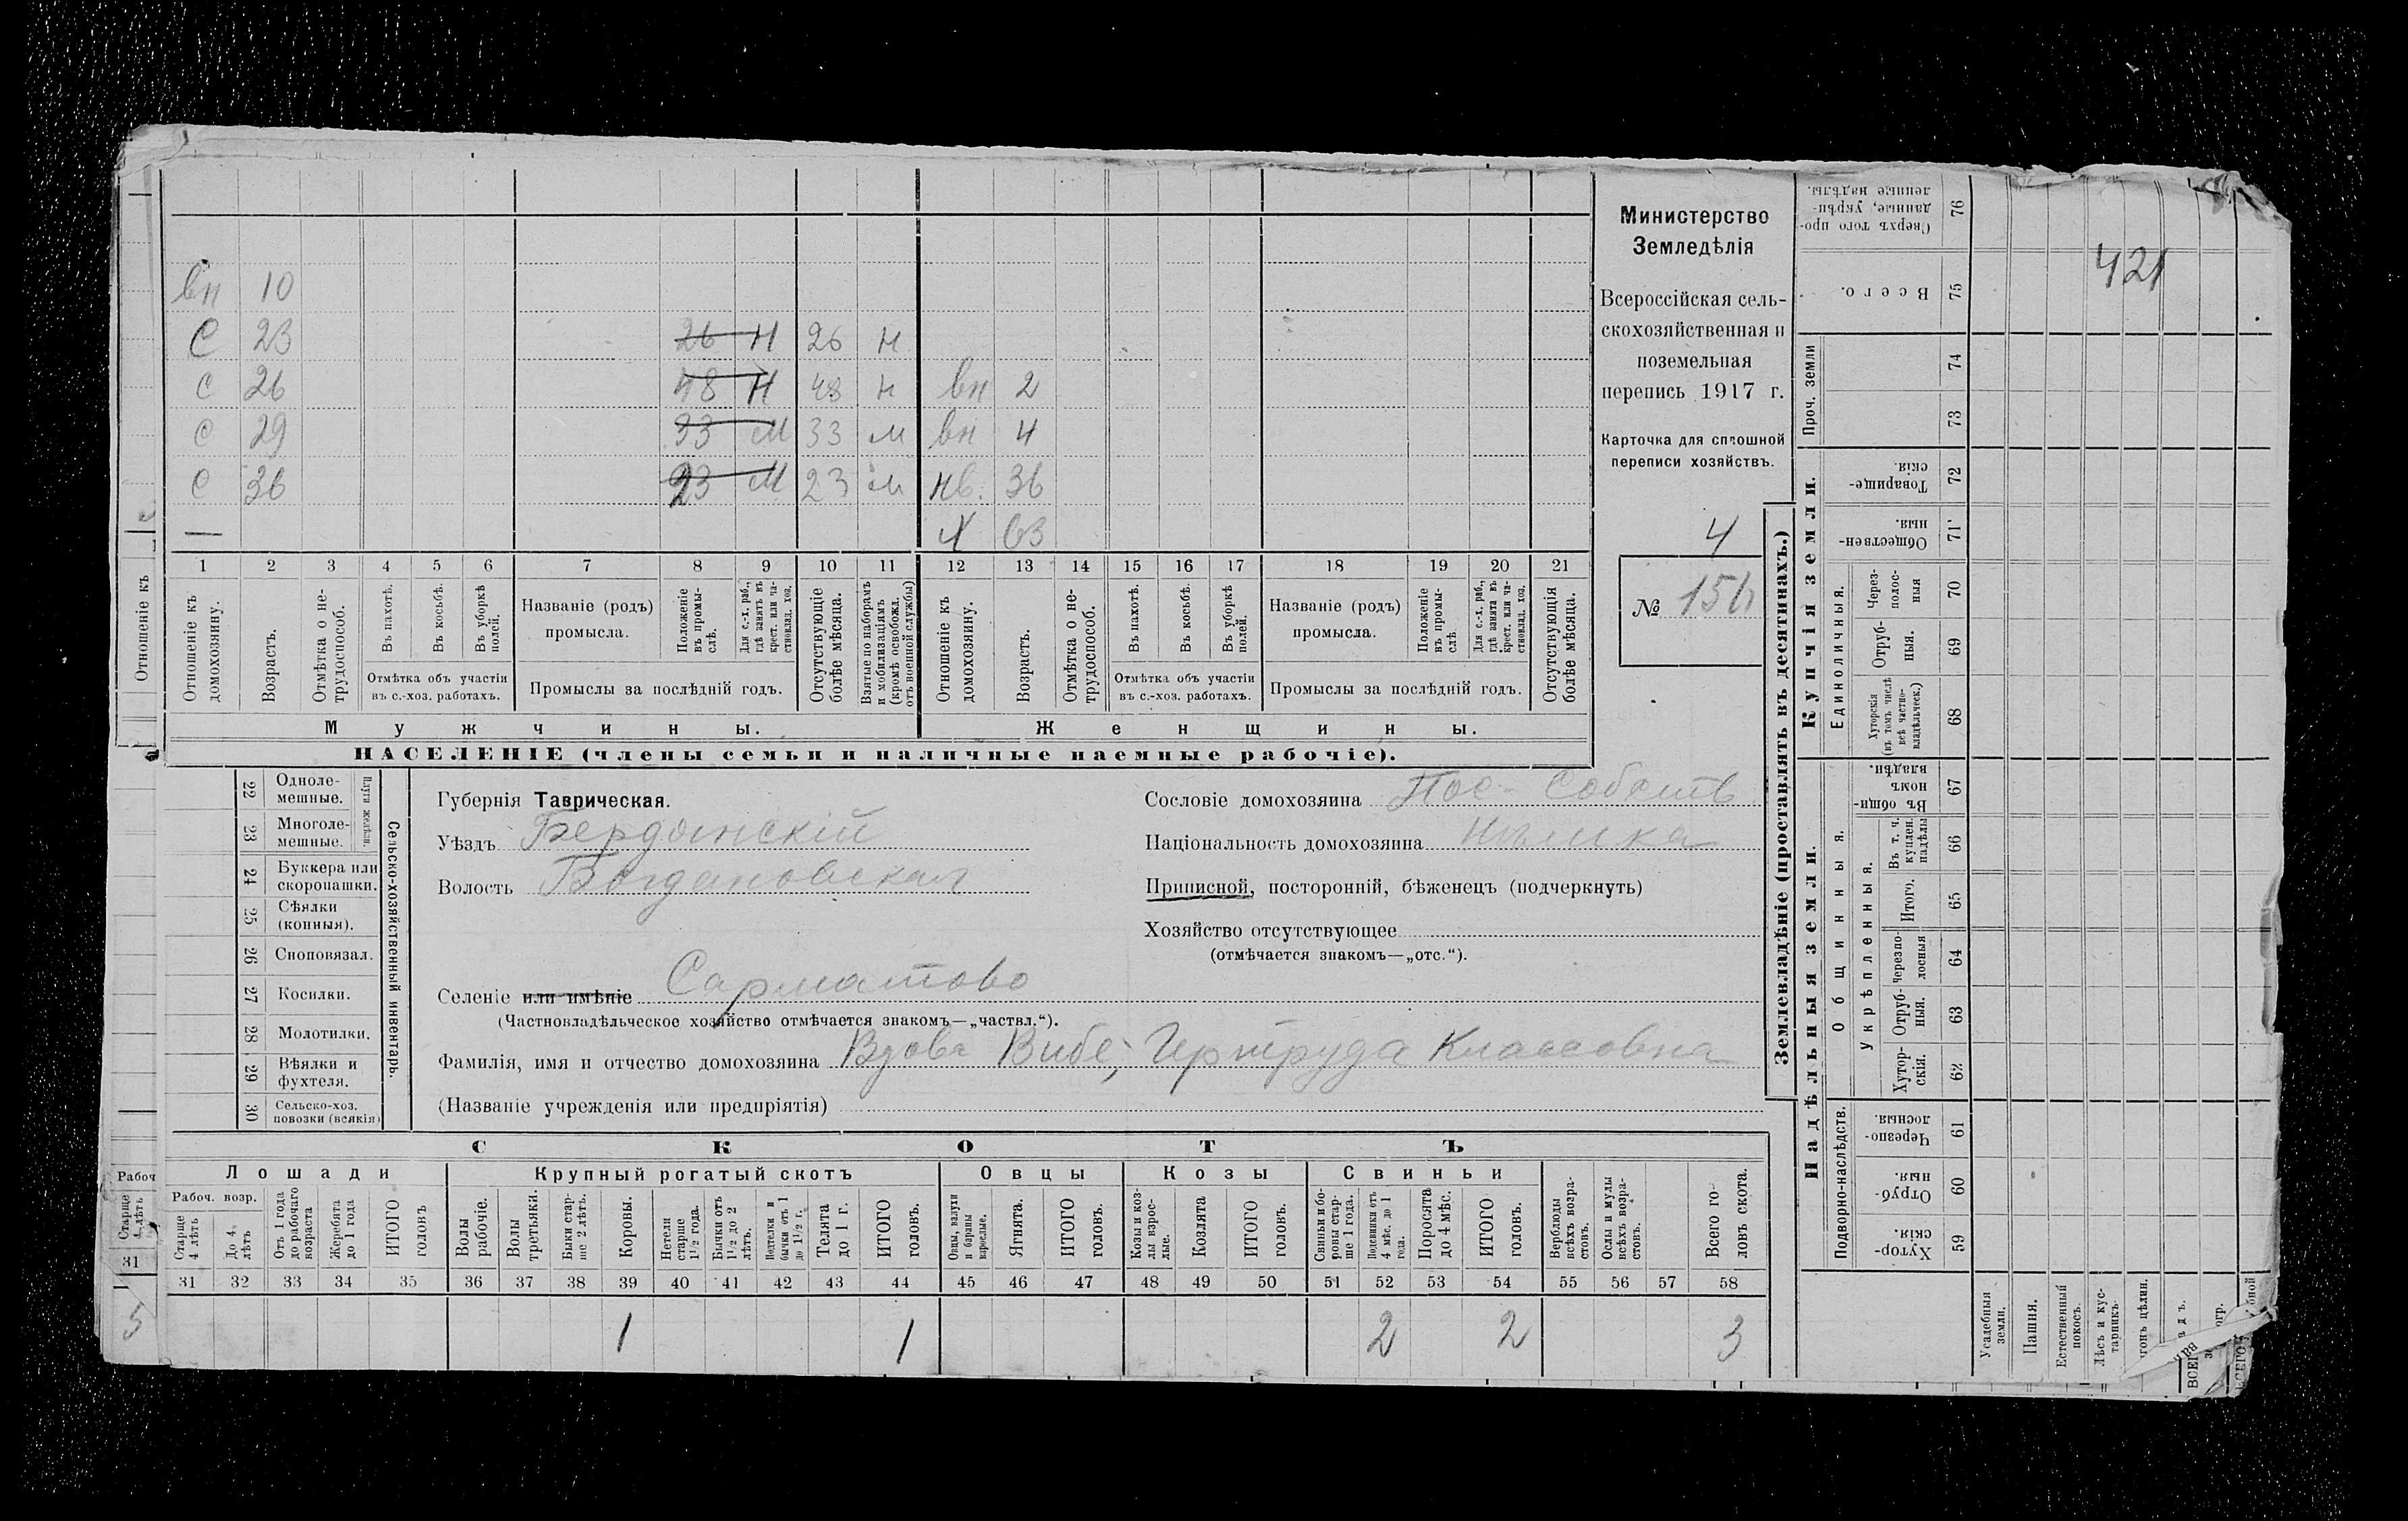 вн 10
С 23 26 Н 26 н
С 26 48 Н 48 н вн 2
С 29 33 М 33 м вн 4
С 36 23 М 23 м нв. 36
— Х 63
1 2 3 4 5 6 7 8 9 10 11 12 13 14 15 16 17 18 19 20 21
Отношеніе къ домохозяину.
Возрастъ.
Отмѣтка о не-
трудоспособ.
Въ пахотѣ.
Въ косьбѣ.
Въ уборкѣ полей.
Отмѣтка объ участіи
въ с.-хоз. работахъ.
Названіе (родъ)
промысла.
Положеніе въ промы-
слѣ.
Для с.-х. раб., гдѣ занятъ въ крест. или ча-
стновлад. хоз.
Промыслы за послѣдній годъ.
Отсутствующіе болѣе мѣсяца.
Взятые по наборамъ и мобилизаціямъ (кромѣ освобожд. отъ военной службы)
Отношеніе къ домохозяину.
Возрастъ.
Отмѣтка о не-
трудоспособ.
Въ пахотѣ.
Въ косьбѣ.
Въ уборкѣ полей.
Отмѣтка объ участіи
въ с.-хоз. работахъ.
Названіе (родъ)
промысла.
Положеніе въ промы-
слѣ.
Для с.-х. раб., гдѣ занята въ крест. или ча-
стновлад. хоз.
Промыслы за послѣдній годъ.
Отсутствующія болѣе мѣсяца.
Мужчины. Женщины.
НАСЕЛЕНІЕ (члены семьи и наличные наемные рабочіе).
Отношеніе къ
Министерство
Земледѣлія
Всероссійская сель-
скохозяйственная и
поземельная
перепись 1917 г.
Карточка для сплошной
переписи хозяйствъ.
4
№ 156
22 Одноле-
мешные.
23 Многоле-
мешные.
Плуги желѣзн.
24 Буккера или
скоропашки.
25 Сѣялки
(конныя).
26 Сноповязал.
27 Косилки.
28 Молотилки.
29 Вѣялки и
фухтеля.
30 Сельско-хоз.
повозки (всякія)
Сельско-хозяйственный инвентарь.
Губернія Таврическая.
Уѣздъ Бердянскій
Волость Богдановская
Селеніе или имѣніе Сарматово
(Частновладѣльческое хозяйство отмѣчается знакомъ—„частвл.“).
Фамилія, имя и отчество домохозяина Вдова Вибе, Гертруда Классовна
(Названіе учрежденія или предпріятія)
Сословіе домохозяина Пос- Собств.
Національность домохозяина Нѣмка
Приписной, посторонній, бѣженецъ (подчеркнуть)
Хозяйство отсутствующее
(отмѣчается знакомъ—„отс.“).
СКОТЪ
Лошади Крупный рогатый скотъ Овцы Козы Свиньи
Рабоч. возр.
Старше 4 лѣтъ
До 4 лѣтъ
Отъ 1 года до рабочаго возраста
Жеребята до 1 года
ИТОГО головъ
Волы рабочіе.
Волы третьяки.
Быки стар-
ше 2 лѣтъ.
Коровы.
Нетели старше 1½ года.
Бычки отъ 1½ до 2 лѣтъ.
Нетелки и бычки отъ 1 до 1½ г.
Телята до 1 г.
ИТОГО головъ.
Овцы, валухи и бараны взрослые.
Ягнята.
ИТОГО головъ.
Козы и коз-
лы взрос-
лые.
Козлята
ИТОГО головъ.
Свиньи и бо-
ровы стар-
ше 1 года.
Подсвинки отъ 4 мѣс. до 1 года.
Поросята до 4 мѣс.
ИТОГО головъ.
Верблюды всѣхъ возра-
стовъ.
Ослы и мулы всѣхъ возра-
стовъ.
Всего го-
ловъ скота.
31 32 33 34 35 36 37 38 39 40 41 42 43 44 45 46 47 48 49 50 51 52 53 54 55 56 57 58
1 1 2 2 3
Рабоч
Старше 4 лѣтъ
31
5
Землевладѣніе (проставлять въ десятинахъ.)
Купчія земли.
Надѣльныя земли.
76 Сверхъ того про-
данные, укрѣп-
ленные надѣлы.
75 Всего.
Проч. земли
74
73
72 Товарище-
скія.
71 Обществен-
ныя.
Единоличныя.
70 Через-
полос-
ныя
69 Отруб-
ныя.
68 Хуторскія (въ томъ числѣ всѣ частно-
владѣльческ.)
Общинныя.
67 Въ общин-
номъ
владѣн.
Укрѣпленныя.
66 Въ т. ч. куплен. надѣлы
65 Итого.
64 Черезпо-
лосныя
63 Отруб-
ныя.
62 Хутор-
скія.
Подворно-наслѣдств.
61 Черезпо-
лосныя.
60 Отруб-
ныя.
59 Хутор-
скія.
Усадебныя земли.
Пашня.
Естественный покосъ.
Лѣсъ и кус-
тарникъ.
421